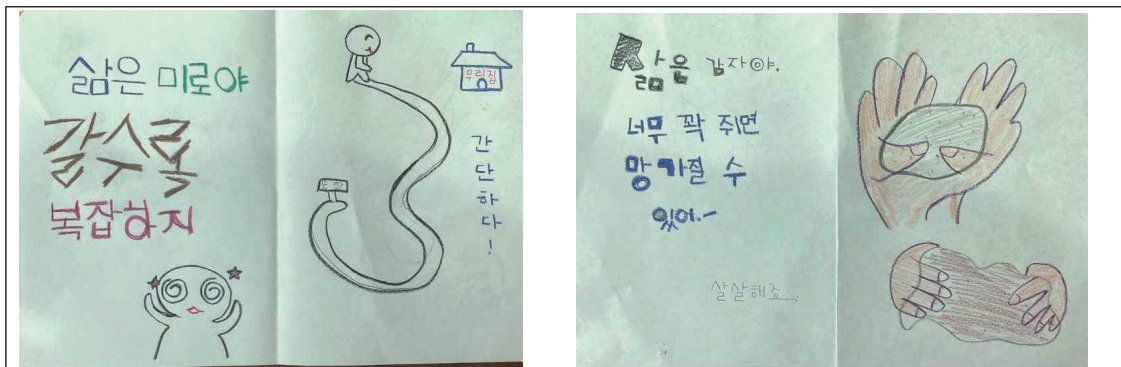 삶은 미로야
갈수록
복잡하지
우리집
간단하다!
도장
삶은 감자야.
너무 꽉 쥐면
망가질 수
있어.~
살살해죠...